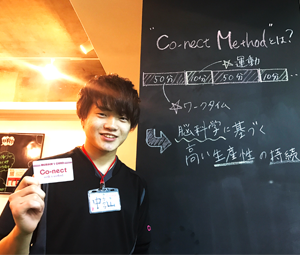 "Co-nect Method"とは?
☆運動
50分 10分 50分 10分
☆ワークタイム
脳科学に基づく
高い生産性の持続
Co-nect